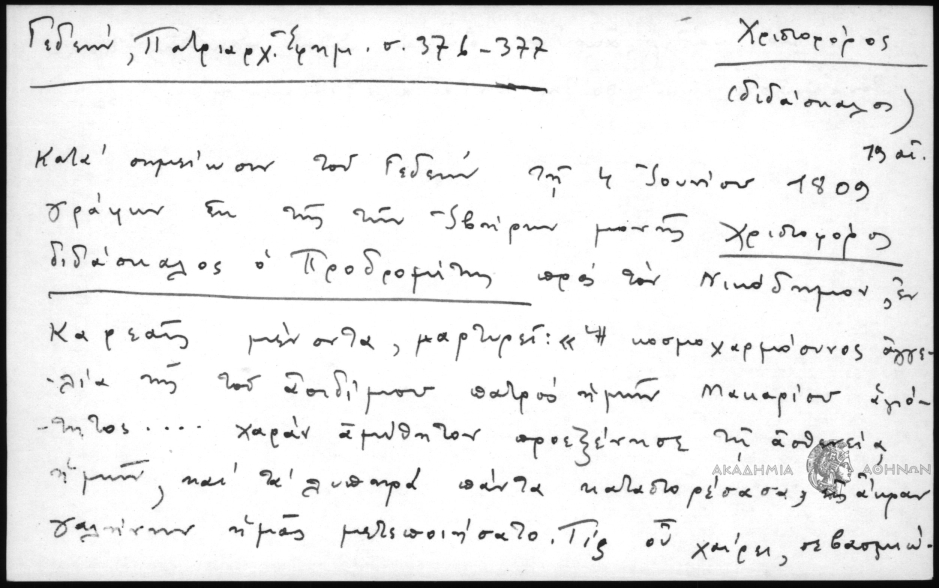 Γεδεών, Πατριαρχ. Ἐφημ. σ. 376-377
Χριστοφόρος
(διδάσκαλος)
19 αἰ.
Κατά σημείωσιν τοῦ Γεδεών τῇ 4 Ἰουνίου 1809
γράφων ἐκ τῆς τῶν Ἰβήρων μονῆς Χριστοφόρος
διδάσκαλος ὁ Προδρομίτης πρός τόν Νικόδημον, ἐν
Καρεαῖς μένοντα, μαρτυρεῖ: «Ἡ κοσμοχαρμόσυνος ἀγγε-
-λία τῆς τοῦ ἀοιδίμου πατρός ἡμῶν Μακαρίου ἁγιό-
-τητος .... χαράν ἀμύθητον προεξένησε τῇ ἀσθενείᾳ
ἡμῶν, καί τά λυπηρά πάντα καταστορέσασα, εἰς ἄκραν
γαλήνην ἡμᾶς μετεποιήσατο. Τίς οὐ χαίρει, σεβασμιώ-
ΑΚΑΔΗΜΙΑ ΑΘΗΝΩΝ